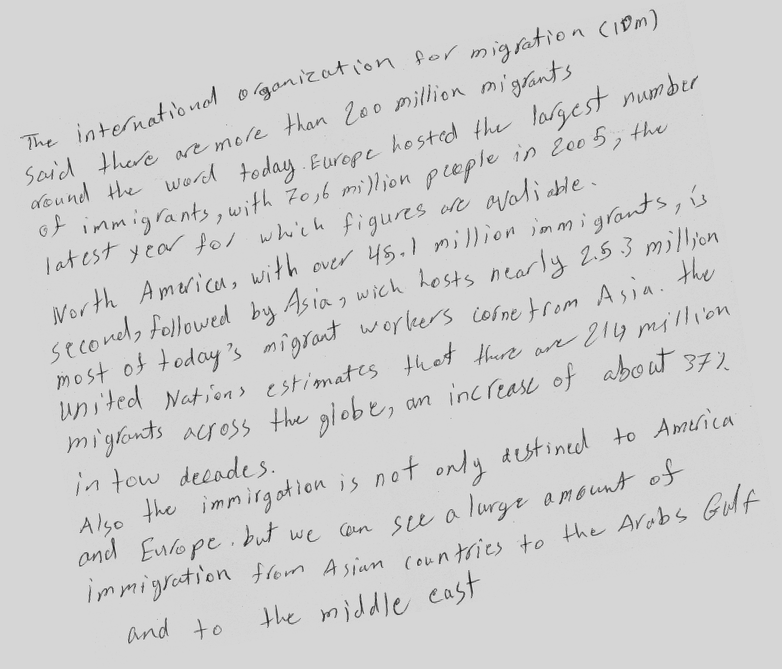 The international organization for migration (IOm)
said there are more than 200 million migrants
around the word today. Europe hosted the largest number
of immigrants, with 70,6 million people in 2005, the
latest year for which figures are avaliable.
North America, with over 45.1 million immigrants, is
second, followed by Asia, wich hosts nearly 25.3 million
most of today's migrant workers come from Asia. the
United Nations estimates that there are 214 million
migrants across the globe, an increase of about 37%
in tow decades.
Also the immirgation is not only destined to America
and Europe. but we can see a large amount of
immigration from Asian countries to the Arabs Gulf
and to the middle east